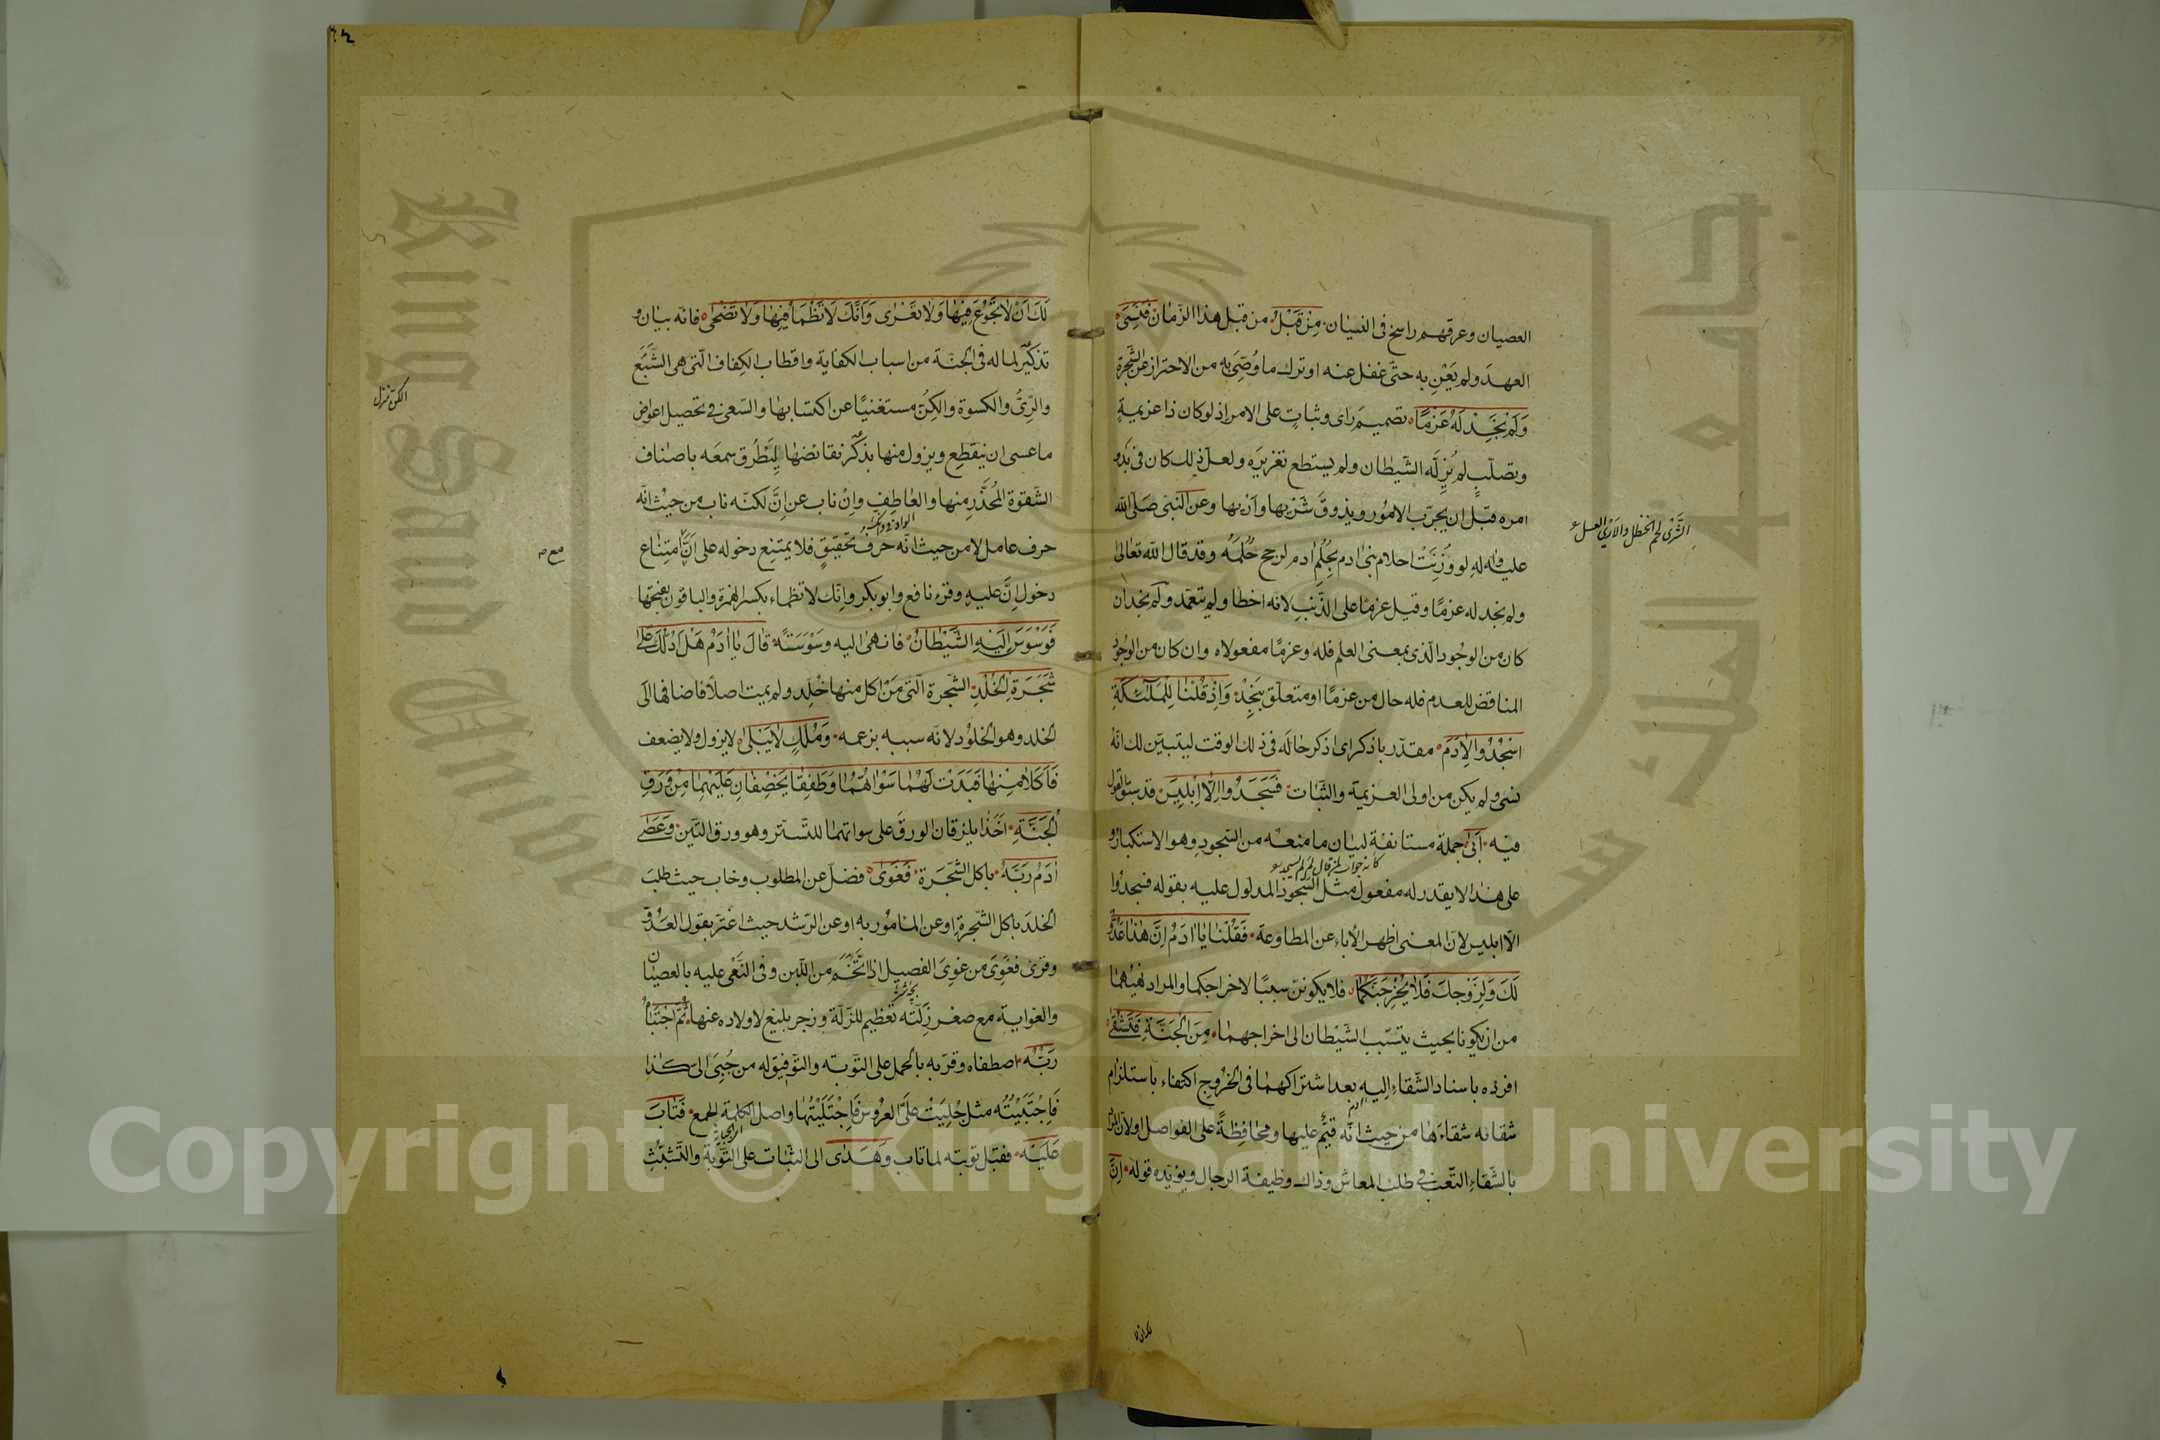 العصيان وعرقهم راسخ فى النسيان مِنْ قَبْلُ من قبل هذا الزمان فَنَسِىَ
العهدَ ولم يَعْنِ به حتى غفل عنه او ترك ما وُصِّىَ به من الاحتراز عن الشجرة
وَلَمْ نَجِدْ لَهُ عَزْمًا تصميم راى وثباتٍ على الامر اذ لو كان ذا عزيمةٍ
وتصلّبٍ لم يُزِلَّه الشيطان ولم يستطع تغريرَه ولعلّ ذلك كان فى بَدْو
امره قبل ان يجرّب الامور ويذوق شَرْيها واَرْيها وعن النبى صلى الله
عليه واله لو وُزِنَتْ احلام بنى ادم بِحُلُم ادم لرجح حُلُمُه وقد قال الله تعالى
ولم نجد له عزمًا وقيل عزمًا على الذَّنبِ لانه اخطا ولم يتعمّد ولم نجد ان
كان من الوجود الّذى بمعنى العلم فله وعزمًا مفعولاه وان كان من الوجود
المناقض للعدم فله حال من عزمًا او متعلّق بنجِدْ وَاِذْ قُلْنَا لِلْمَلٰٓئِكَةِ
اسْجُدُوا لِاٰدَمَ مقدّر باذكر اى اذكر حاله فى ذلك الوقت ليتبيّن لك انه
نسى ولم يكن من اولى العزيمة والثبات فَسَجَدُوا اِلَّا اِبْلِيسَ قد سبق القول
فيه اَبٰى جملة مستانفة لبيان ما منعه من السّجودِ وهو الاستكبار و
كانه جواب لمن قال لِمَ لم يسجد
على هذا لا يقدر له مفعول مثل السّجود المدلول عليه بقوله فسجدوا
الا ابليس لانّ المعنى اظهر الاباء عن المطاوعة فَقُلْنَا يَا اٰدَمُ اِنَّ هٰذَا عَدُوٌّ
لَكَ وَلِزَوْجِكَ فَلَا يُخْرِجَنَّكُمَا فلا يكوننّ سببًا لاخراجكما والمراد نهيهما
من ان يكونا بحيث يتسّبب الشّيطان الى اخراجهما مِنَ الْجَنَّةِ فَتَشْقٰى
افرده باسناد الشّقاء اليه بعد اشتراكهما فى الخروج اكتفاء باستلزام
شقائه شقاءَها من حيث انّه قيّم عليها ومحافظةً على الفواصل اولان المراد
بالشّقاءِ التّعب فى طلب المعاش وذلك وظيفة الرجال ويؤيّده قوله اِنَّ
الشَّرْىُ الحنظل والاَرْىُ العسل
لَكَ اَنْ لَا تَجُوعَ فِيهَا وَلَا تَعْرٰى وَاَنَّكَ لَا تَظْمَأُ فِيهَا وَلَا تَضْحٰى فانّه بيان و
تذكيرٌ لما له فى الجنّة من اسباب الكفاية واقطاب الكِفاف الّتى هى الشَّبَع
والرِّىُّ والكسوة والكِنُّ مستغنيًا عن اكتسابها والسّعى فى تحصيل اعواض
ما عسى ان ينقطع ويزول منها بذكر نقائضها لِيَطْرُق سمعَه باصناف
الشّقوة المُحَذَّرِ منها والعاطف وانْ ناب عن اِنَّ لكنّه ناب من حيث انّه
حرف عامل لا من حيث انّه حرف تحقيقٍ فلا يمتنع دخوله على اَنَّ امتناع
دخول اِنَّ عليه وقرء نافع وابو بكر وانّك لا تظماء بكسر الهمزة والباقون بفتحها
فَوَسْوَسَ اِلَيْهِ الشَّيْطَانُ فانهى اليه وَسْوَسَتَهُ قَالَ يَا اٰدَمُ هَلْ اَدُلُّكَ عَلٰى
شَجَرَةِ الْخُلْدِ الشّجرة الّتى مَنْ اكل منها خُلِد ولم يمت اصلاً فاضافها الَى
الخلد وهو الخلود لانه سببه بزعمه وَمُلْكٍ لَا يَبْلٰى لا يزول ولا يضعف
فَاَكَلَا مِنْهَا فَبَدَتْ لَهُمَا سَوْاٰتُهُمَا وَطَفِقَا يَخْصِفَانِ عَلَيْهِمَا مِنْ وَرَقِ
الْجَنَّةِ اَخَذا يلزقان الورقَ على سواتهما للتّستر وهو ورق التّين وَعَصٰى
اٰدَمُ رَبَّهُ باكل الشّجَرَةِ فَغَوٰى فضلّ عن المطلوب وخاب حيث طلب
الخلدَ باكل الشّجرةِ او عن المامُور به او عن الرّشد حيث اغترّ بقول العدُوّ
وقرئ فغَوِىَ من غوِىَ الفصيل اذا اتَّخَم من اللّبن وفى النَّعْى عليه بالعصيان
والغواية مع صغر زلّته تعظيم للزلّة وزجر بليغ لاولاده عنها ثُمَّ اجْتَبَاهُ
رَبُّهُ اصطفاه وقرّبه بالحمل على التوبة والتّوفيق له من جُبِىَ الىّ كذا
فَاجْتَبَيْتُه مثل جُلِيَتْ علىّ العروُس فَاجْتَلَيْتُها واصل الكلمة الجمع فَتَابَ
عَلَيْهِ فقبل توبته لما تاب وَهَدٰى الى الثبات على التّوبة والتّشبّثِ
الكِنّ منزل
صح
لك ان لا
King Saud University
جامعة الملك سعود
Copyright © King Saud University